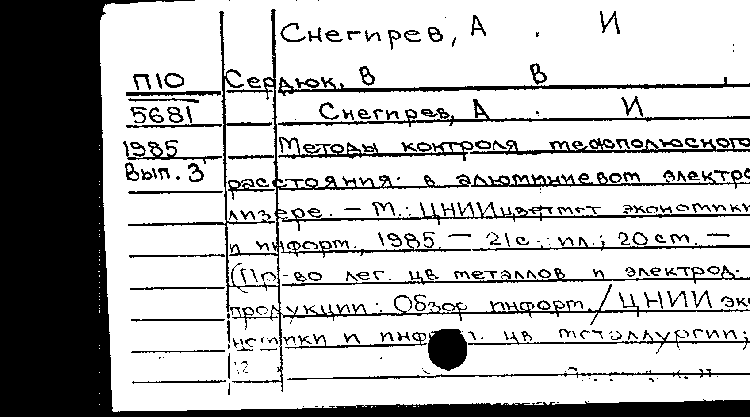 Снегирев, А . И
П10 Сердюк, В В
5681 Снегирев, А . И
1985 Методы контроля междополюсного
Вып. 3 расстояния в алюминиевом электро
лизере. — М.: ЦНИИцветмет экономики
и информ., 1985. — 21 с.: ил.; 20 см. —
(Пр-во лег. цв металлов и электрод.
продукции: Обзор информ. / ЦНИИ эко
номики и информ. цв металлургии;
12